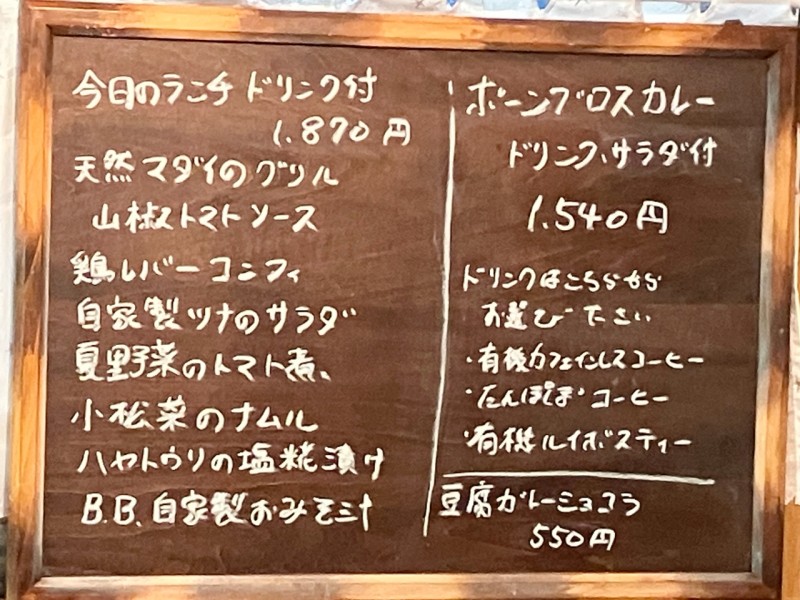 今日のランチ ドリンク付
1.870円
天然マダイのグリル
山椒トマトソース
鶏レバーコンフィ
自家製ツナのサラダ
夏野菜のトマト煮、
小松菜のナムル
ハヤトウリの塩糀漬け
B.B.自家製おみそ汁
ボーンブロスカレー
ドリンク、サラダ付
1.540円
ドリンクはこちらから
お選びください
・有機カフェインレスコーヒー
・たんぽぽコーヒー
・有機ルイボスティー
豆腐ガトーショコラ
550円